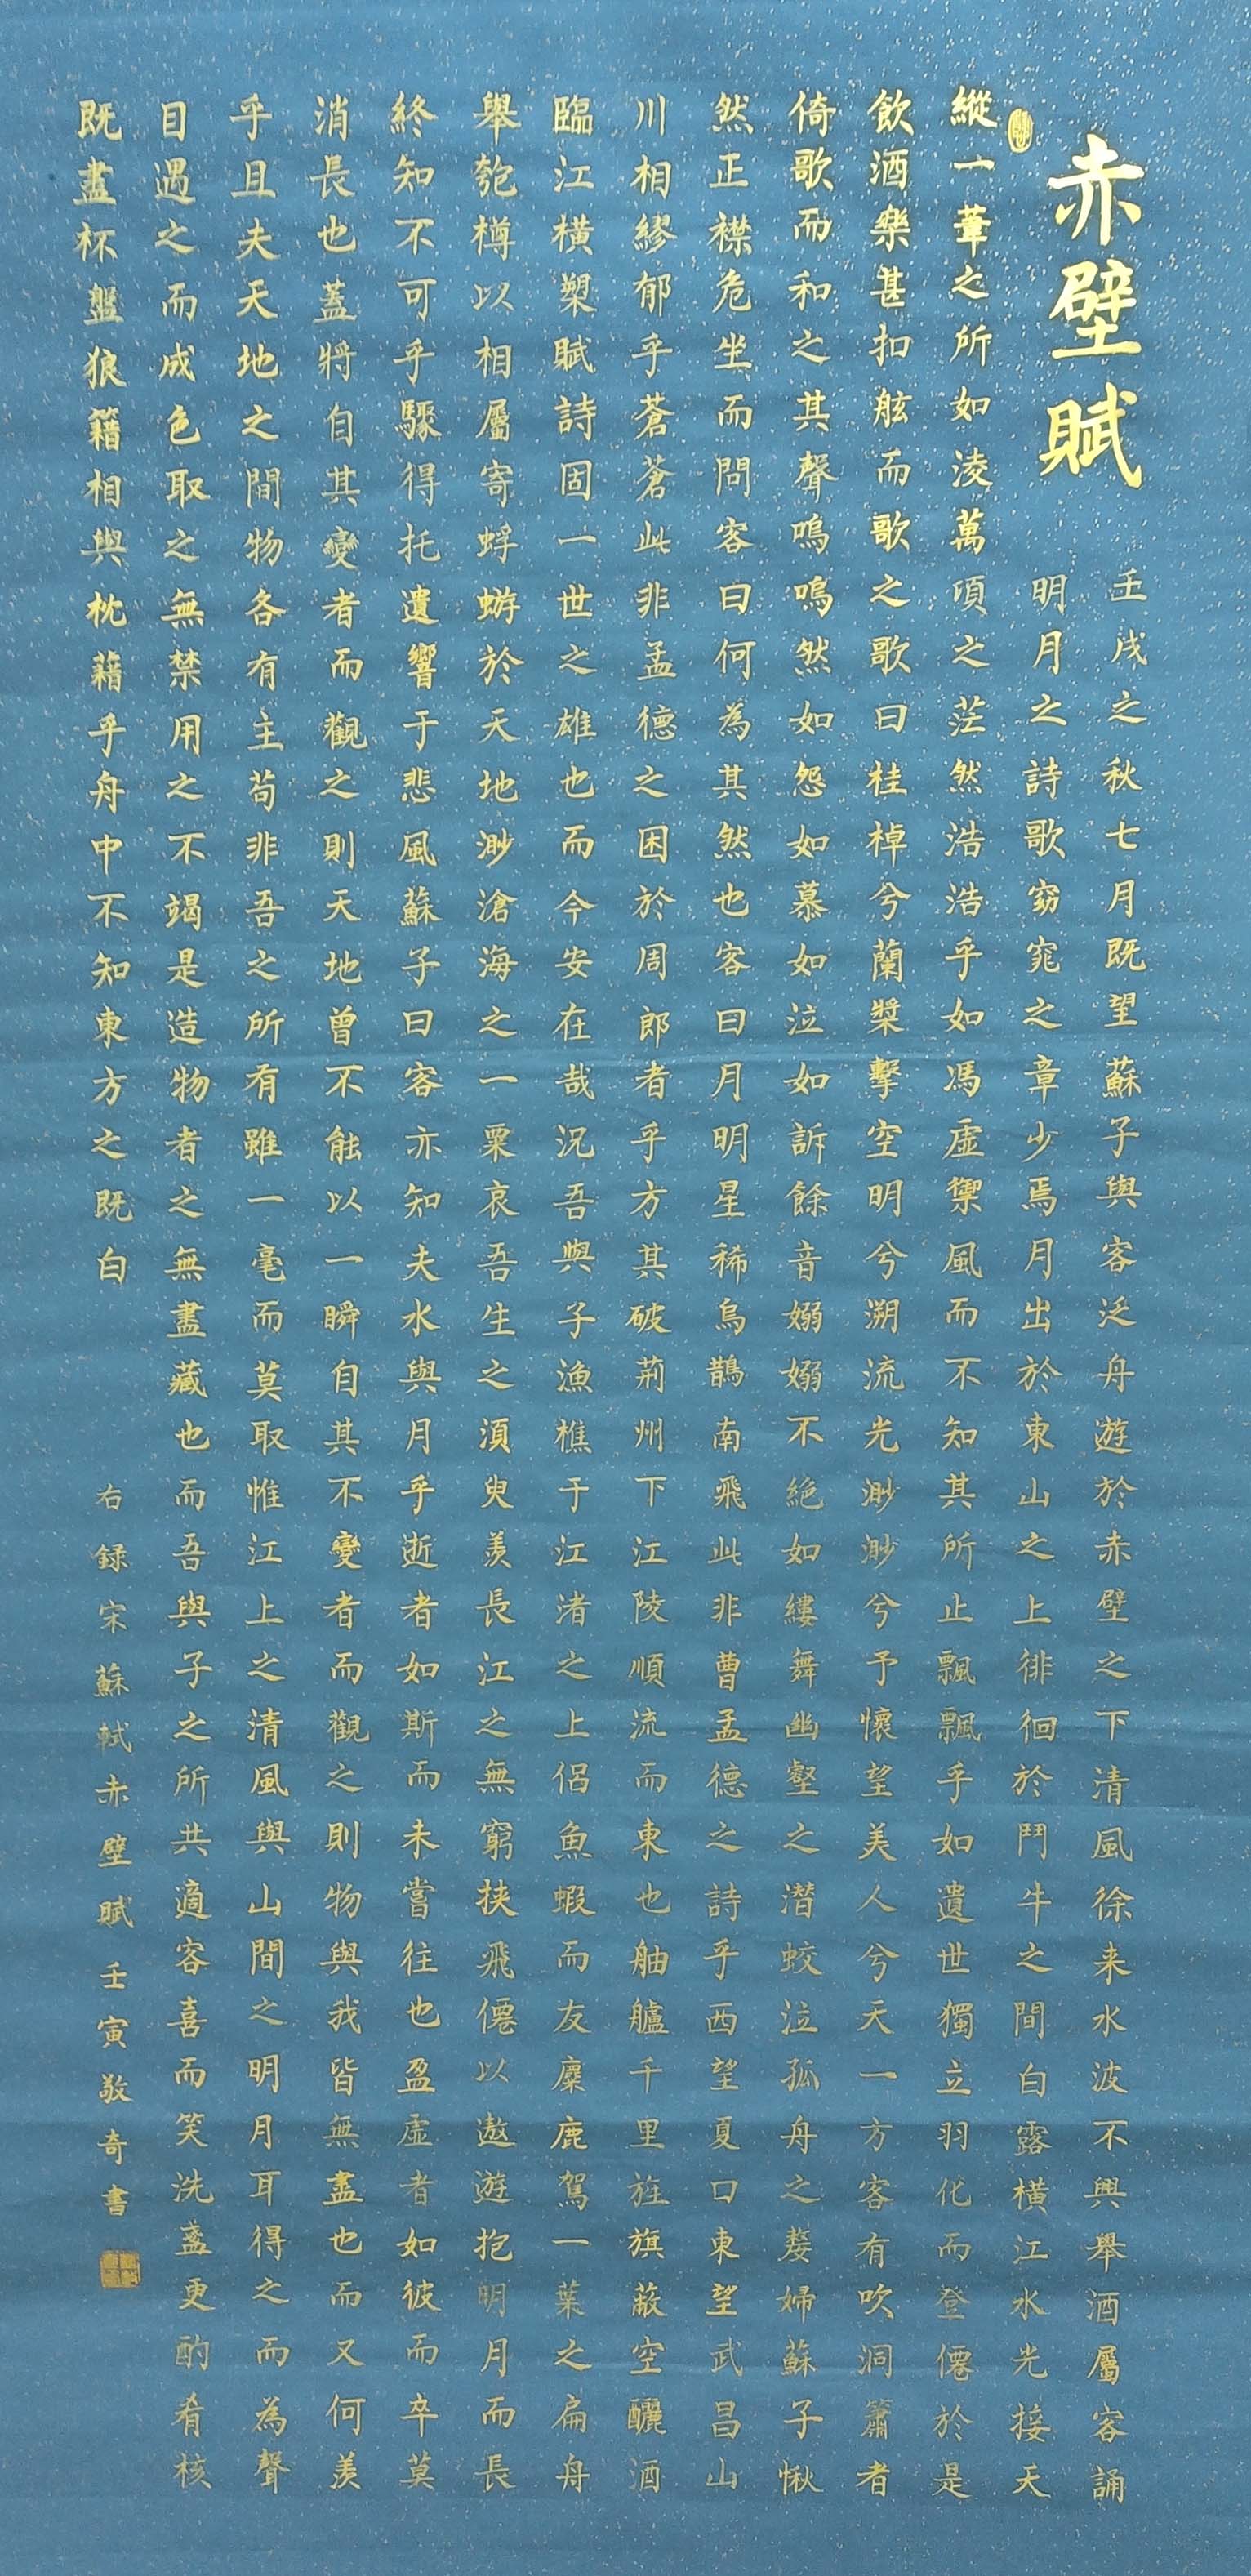 赤壁賦
壬戌之秋七月既望蘇子與客泛舟遊於赤壁之下清風徐来水波不興舉酒屬客誦
明月之詩歌窈窕之章少焉月出於東山之上徘徊於鬥牛之間白露橫江水光接天
縱一葦之所如淩萬頃之茫然浩浩乎如馮虛禦風而不知其所止飄飄乎如遺世獨立羽化而登僊於是
飲酒樂甚扣舷而歌之歌曰桂棹兮蘭槳擊空明兮溯流光渺渺兮予懷望美人兮天一方客有吹洞簫者
倚歌而和之其聲嗚嗚然如怨如慕如泣如訴餘音嫋嫋不絕如縷舞幽壑之潛蛟泣孤舟之嫠婦蘇子愀
然正襟危坐而問客曰何為其然也客曰月明星稀烏鵲南飛此非曹孟德之詩乎西望夏口東望武昌山
川相繆郁乎蒼蒼此非孟德之困於周郎者乎方其破荊州下江陵順流而東也舳艫千里旌旗蔽空釃酒
臨江橫槊賦詩固一世之雄也而今安在哉況吾與子漁樵于江渚之上侶魚蝦而友麋鹿駕一葉之扁舟
舉匏樽以相屬寄蜉蝣於天地渺滄海之一粟哀吾生之須臾羨長江之無窮挟飛僊以遨遊抱明月而長
終知不可乎驟得托遺響于悲風蘇子曰客亦知夫水與月乎逝者如斯而未嘗往也盈虛者如彼而卒莫
消長也蓋將自其變者而觀之則天地曾不能以一瞬自其不變者而觀之則物與我皆無盡也而又何羨
乎且夫天地之間物各有主苟非吾之所有雖一毫而莫取惟江上之清風與山間之明月耳得之而為聲
目遇之而成色取之無禁用之不竭是造物者之無盡藏也而吾與子之所共適客喜而笑洗盞更酌肴核
既盡杯盤狼籍相與枕藉乎舟中不知東方之既白
右録宋蘇軾赤壁賦壬寅敬奇書